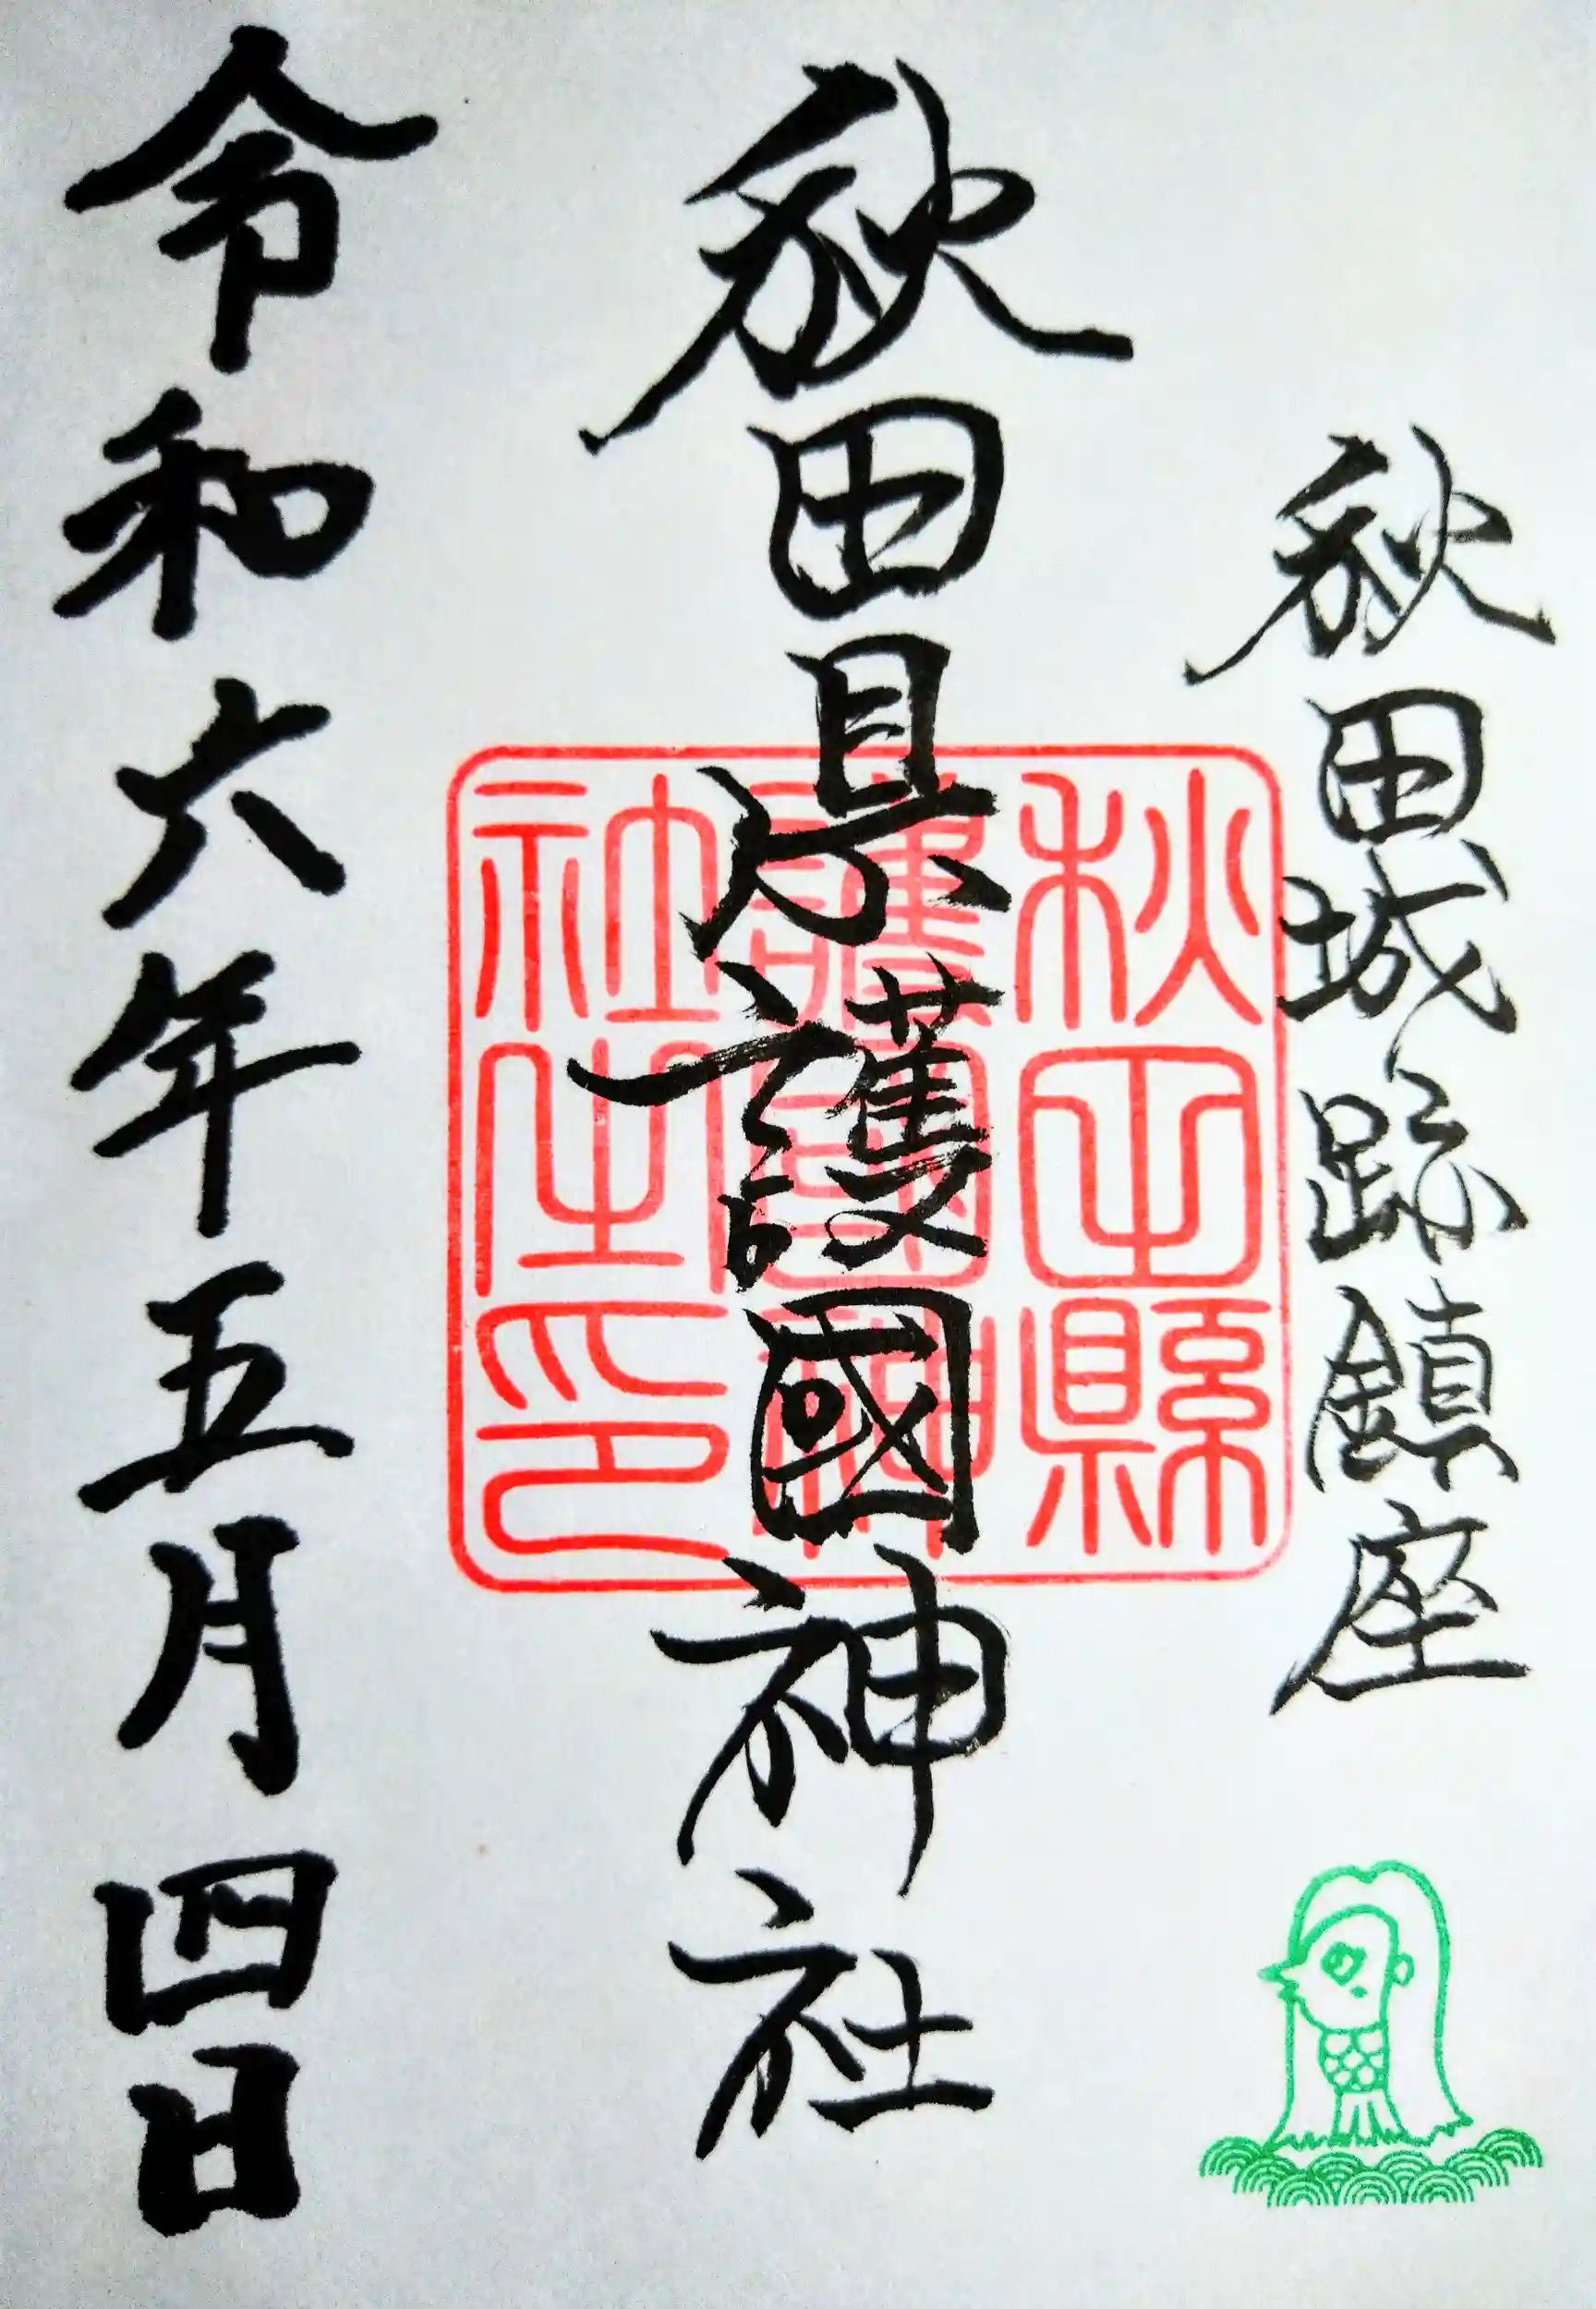 秋田城跡鎮座
秋田県護國神社
秋田縣
護國神
社之印
令和六年五月四日